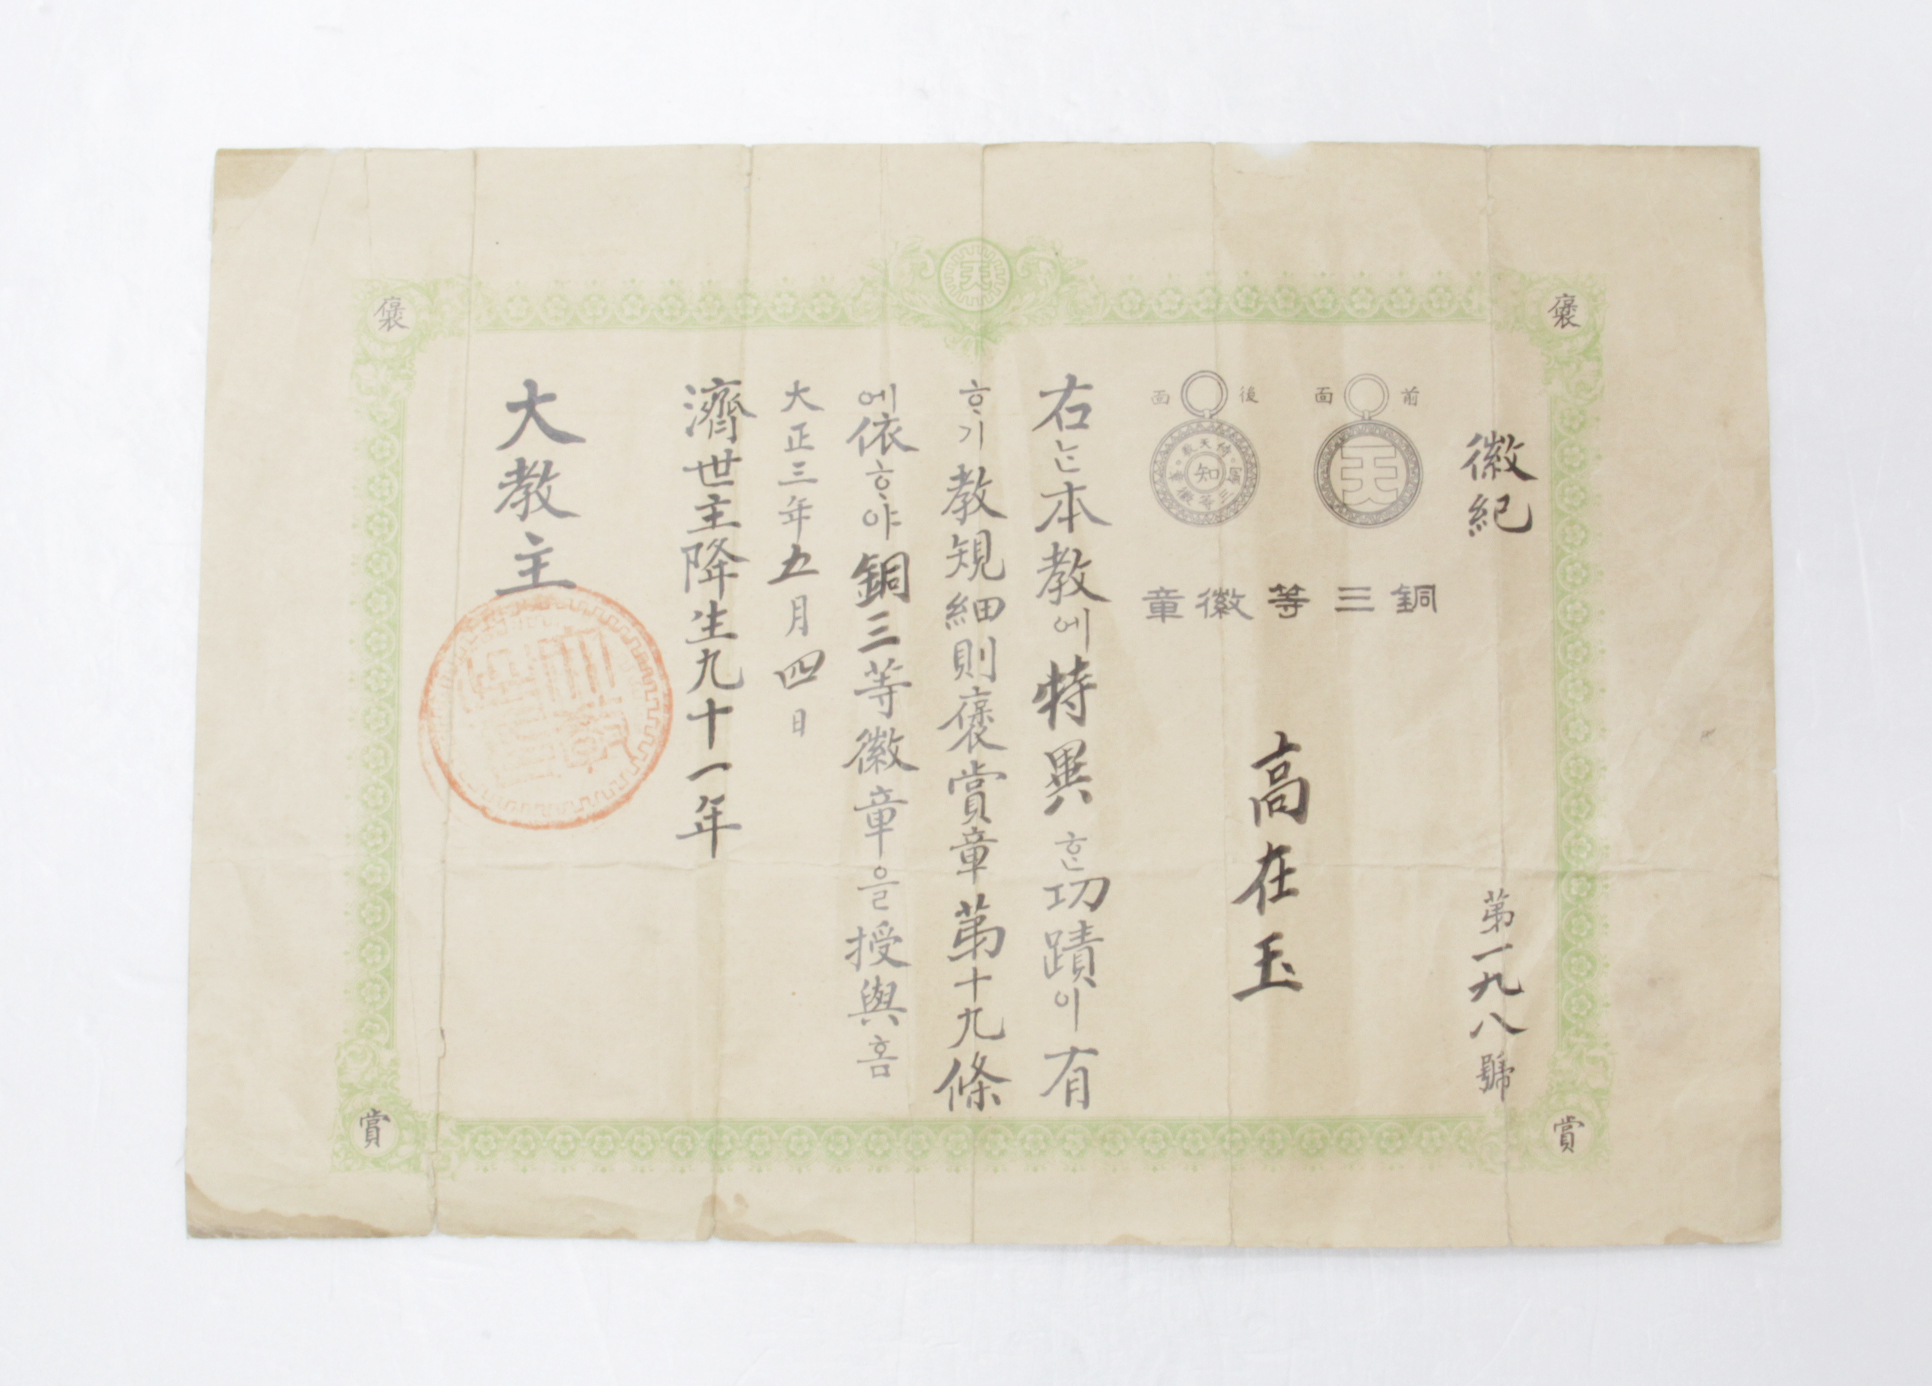 褒
褒
賞
賞
天
徽紀
第一九八號
前面
後面
天
侍天敎
知
銅三等徽章
高在玉
右는本敎에特異ᄒᆞᆫ功蹟이有
ᄒᆞ기敎規細則褒賞章第十九條
에依ᄒᆞ야銅三等徽章을授與홈
大正三年五月四日
濟世主降生九十一年
大敎主